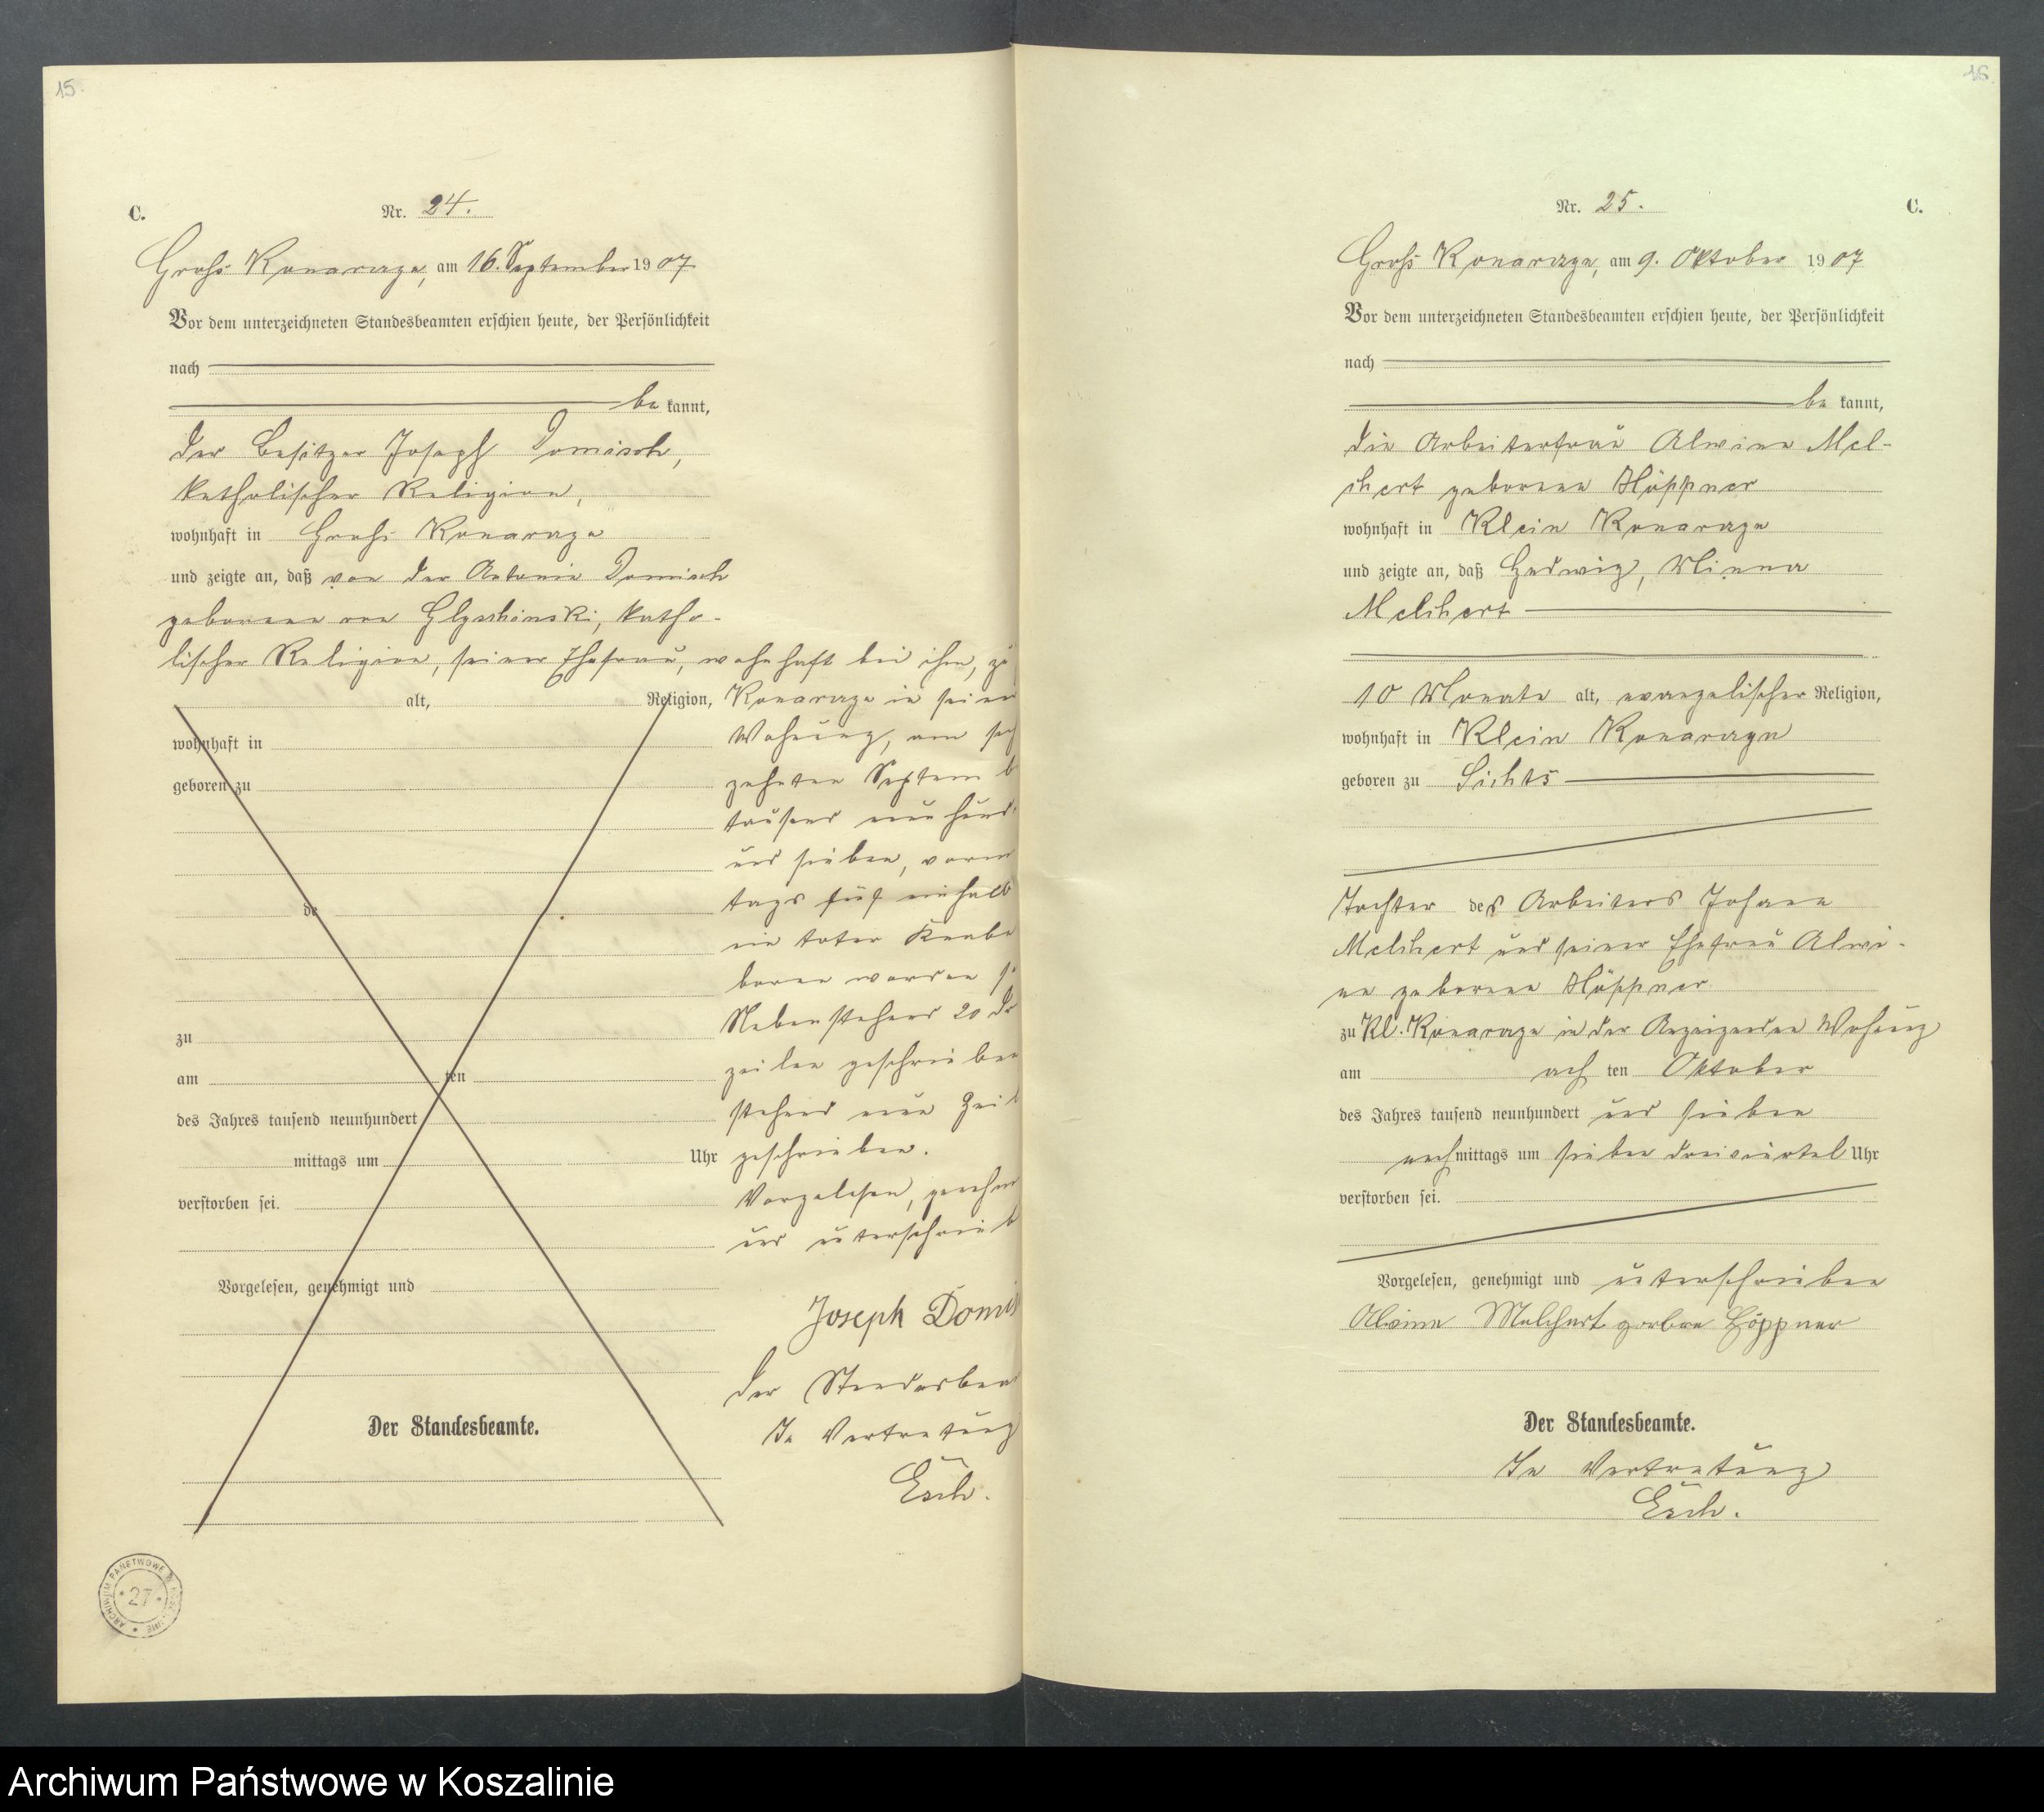 15
C.
Nr. 24.
Groß Konarczyn, am 16. September 1907
Vor dem unterzeichneten Standesbeamten erschien heute, der Persönlichkeit
nach
be kannt,
der Besitzer Joseph Domisch,
katholischer Religion,
wohnhaft in Groß Konarzyn
und zeigte an, daß von der Antonie Domisch
geborene von katho-
lischer Religion, seiner Ehefrau, wohnhaft bei ihm, zu
alt, Religion,
wohnhaft in
geboren zu
de
zu
am ten
des Jahres tausend neunhundert
mittags um Uhr
verstorben sei.
Vorgelesen, genehmigt und
Der Standesbeamte.
in seiner
Wohnung, am sech
zehnten Septemb
tausend neunhund
und sieben, vorm
tags fünf einhalb
ein toter Knabe
boren worden s
Nebenstehend 20 Dr
zeilen geschrieben
stehend neun Zeil
geschrieben.
Vorgelesen, genehm
und unterschrieb
Joseph Domis
Der Standesbea
In Vertretung
Esch.
ARCHIWUM PAŃSTWOWE W KOSZALINIE
27
16
Nr. 25.
C.
Groß Konarzyn, am 9. Oktober 1907
Vor dem unterzeichneten Standesbeamten erschien heute, der Persönlichkeit
nach
be kannt,
die Arbeiterfrau Alwine Mel-
chert geborene Höppner
wohnhaft in Klein Konarzyn
und zeigte an, daß Hedwig, Minna
Melchert
10 Monate alt, evangelischer Religion,
wohnhaft in Klein Konarzyn
geboren zu Lichts
Tochter des Arbeiters Johann
Melchert und seiner Ehefrau Alwi-
ne geborene Höppner
zu Kl. Konarzyn in der Anzeigenden Wohnung
am ach ten Oktober
des Jahres tausend neunhundert und sieben
nachmittags um sieben dreiviertel Uhr
verstorben sei.
Vorgelesen, genehmigt und unterschrieben
Alwine Melchert geborne Höppner
Der Standesbeamte.
In Vertretung
Esch.
Archiwum Państwowe w Koszalinie